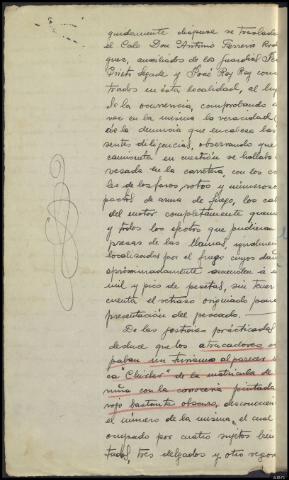 quidamente dispuse se traslada
el Cabo Don Antonio Ferrero Rod
guez, auxiliados de los Guardias
Prieto y José Rey Rey con
trados en esta localidad, al lu
de la ocurrencia, comprobando
voz en la misma la veracidad
de la denuncia que encabeza las
sentes diligencias, observando que
camioneta en cuestión se hallaba
vesada en la carretera, con los c
les de los faros rotos y numeroso
pactos de arma de fuego, los ca
del motor completamente quem
y todos los efectos que pudieran
vesas de las llamas, igualmen
localizados por el fuego cuyos da
aproximadamente ascienden á
mil y pico de pesetas, sin tener
cuenta el retraso originado para
presentación del pescado.
De las gestiones prácticadas
deduce que los atracadores o
paban un turismo al parecer
ca "Chicler" de la matrícula de
ruña con la carrocería pintada
rojo bastante obscuro, desconocien
el número de la misma, el cual
ocupado por cuatro sujetos
tados, tres delgados y otro regor